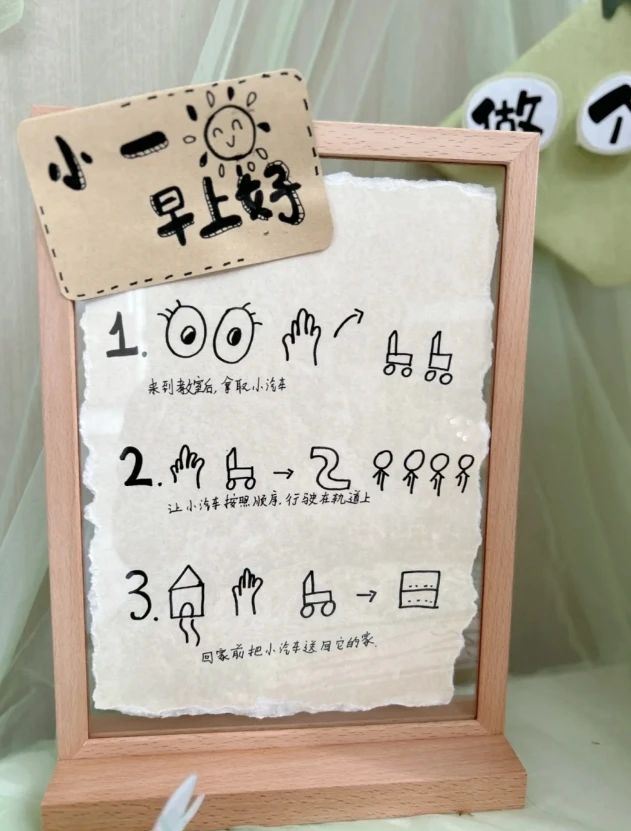 小一
早上好
做个
1.
来到教室后,拿取小汽车
2.
让小汽车按照顺序,行驶在轨道上
3.
回家前把小汽车送回它的家.